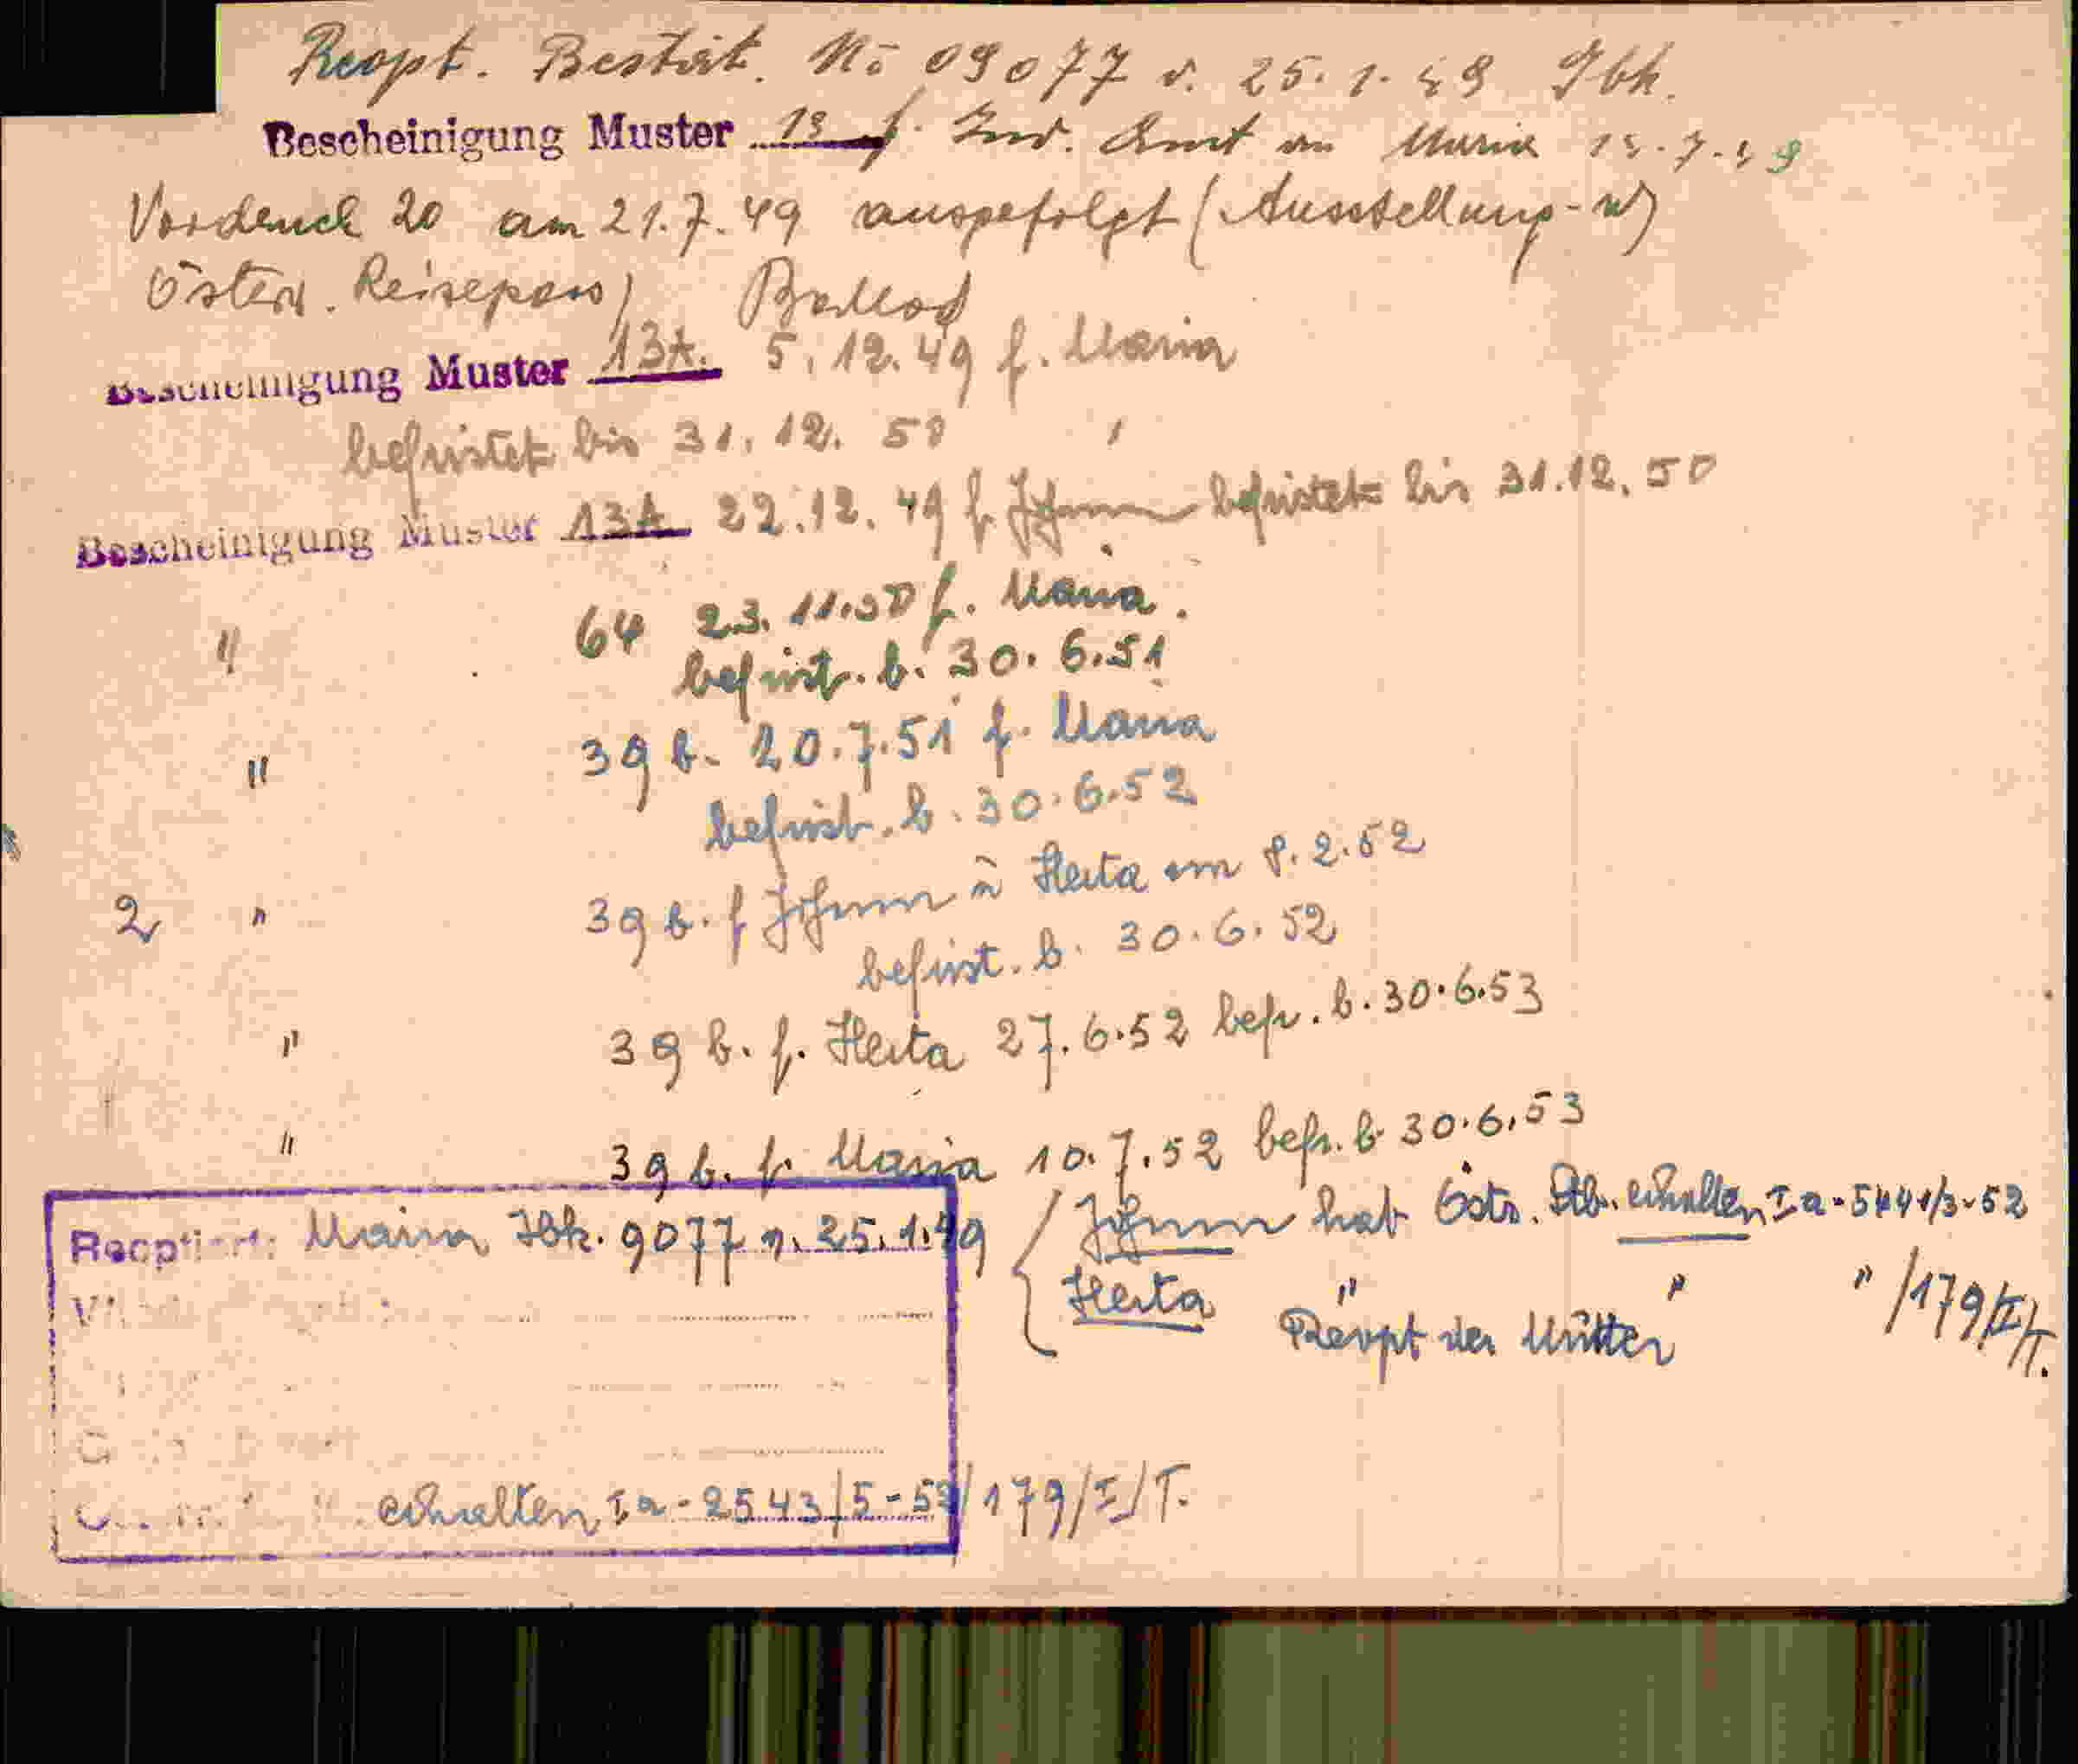 Reopt. Bestät. No 09077 v. 25.1.49 Ibk.
Bescheinigung Muster 13 f. Amt Maria 7.49
Vordruck 20 am 21.7.49 ausgefolgt (Ausstellung-
Österr. Reisepass)
Bescheinigung Muster 13A. 5.12.49 f. Maria
befristet bis 31.12.50
Bescheinigung Muster 13A 22.12.49 f Johann befristet bis 31.12.50
" 64 23.11.50 f. Maria.
befrist. b. 30.6.51
" 39 b. 20.7.51 f. Maria
befrist. b. 30.6.52
2 " 39 b. f Johann u Herta am 8.2.52
befrist. b. 30.6.52
" 39 b. f. Herta 27.6.52 befr. b. 30.6.53
" 39 b. f. Maria 10.7.52 befr. b 30.6.53
Johann hat Östr. Stb. erhalten Ia-5441/3-52
Reoptiert: Maria Ibk. 9077 v. 25.1.49
Herta " " " /179/I/T.
Reopt der Mutter
erhalten Ia-2543/5-52/179/I/T.